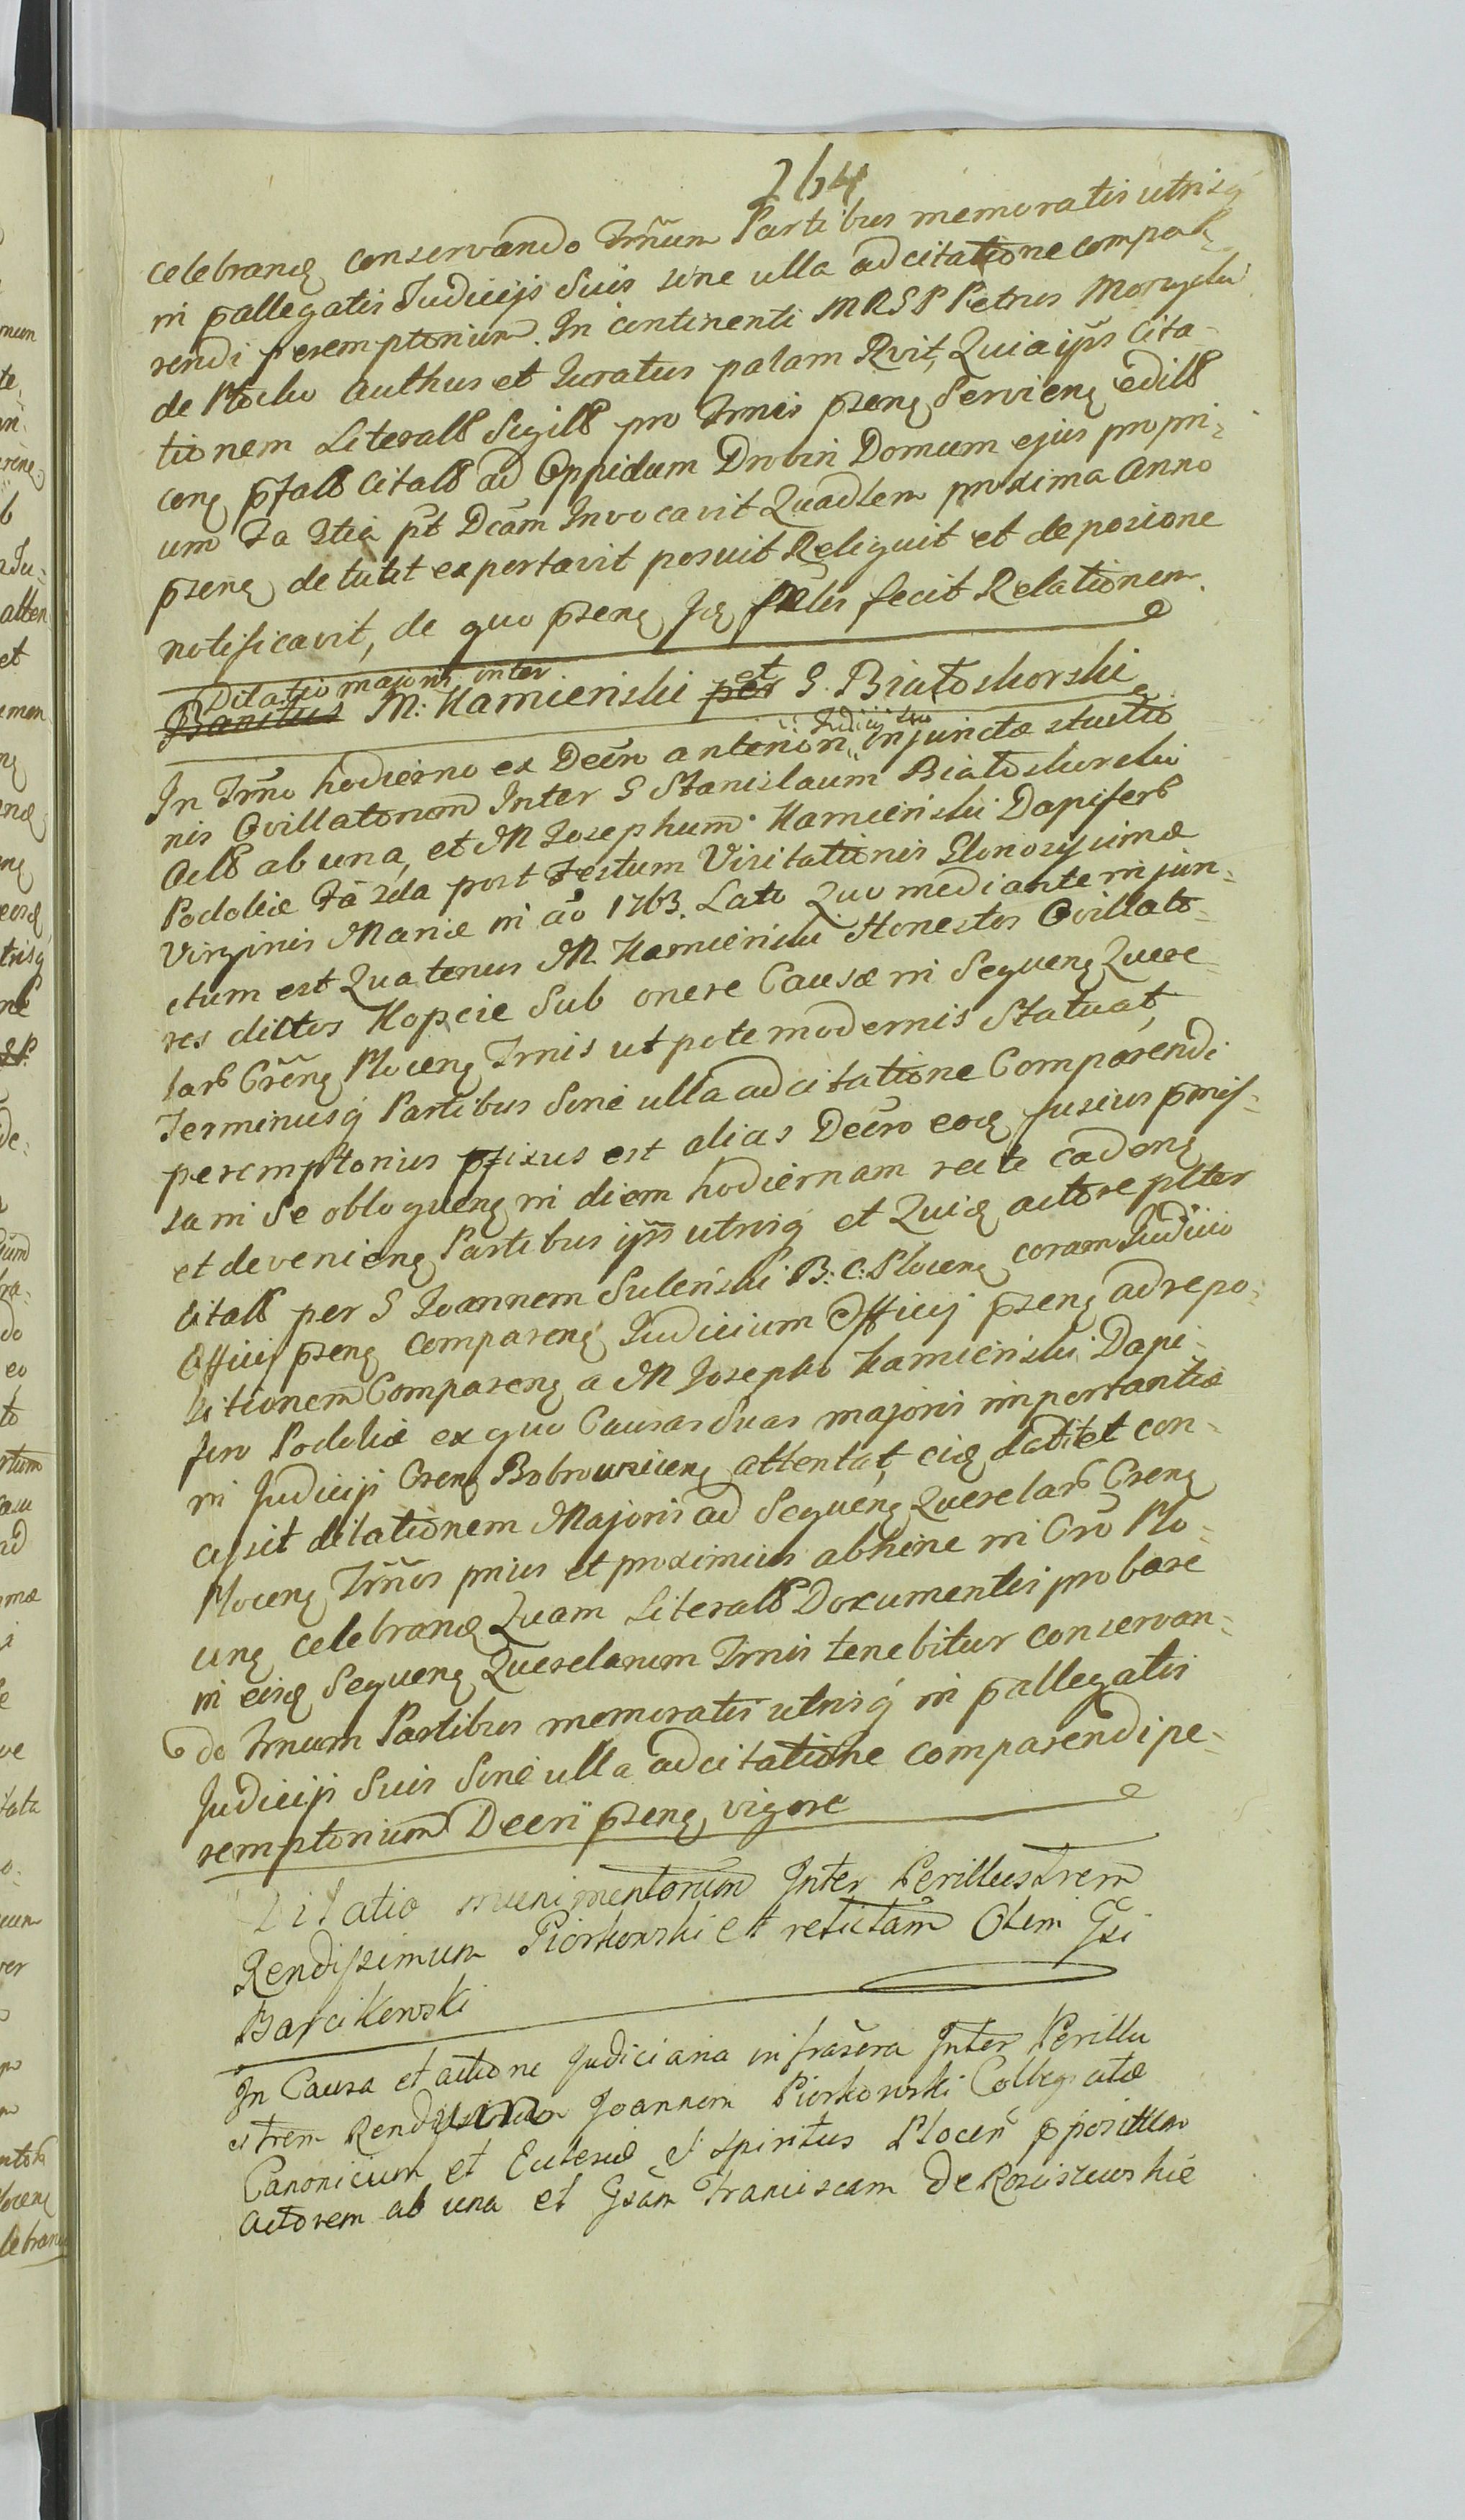 264
celebranđ conservando Trñum Partibus memoratis utrisq
in pallegatis Judicijs Suis sine ulla adcitatione compa
rendi peremptorium. In continenti MRSP Petrus Morzycki
de Plocko authus et Juratus palam Rvit, Quia ijs Cita-
tionem Literall Sigill pro Trmis pseng Servieng edill
ceng pfall Citall ad Oppidum Drobin Domum ejus propri-
um Fa 3tia pt Dcam Invocavit Quadlem proxima anno
pseng detulit exportavit posuit Reliquit et de posione
notificavit, de quo pseng Jq fecit Relationem.
Dilatio majoris inter
M: Kamienski et S. Białoskorski
In Trño hodierno ex Decro anteriori Judicij injunctæ statio
nis Ovillatorum Inter S Stanislaum Białoskorski
act ab una, et M Josephum Kamienski Dapifer
Podoliæ Fa 2da post Festum Visitationis Glorosysimæ
Virginis Mariæ in ao 1763. Lato Quo mediante injun-
ctum est Quatenus M. Kamienski Honestos Ovillato-
res dictos Kopcie Sub onere Causæ in Sequeng Quere-
lar Crēng Ploceng Trmis utpote modernis Statuat,
Terminusq Partibus Sine ulla adcitatione Comparendi
peremptorius pfixus est alias Decro eoq fusius pmis-
sa in Se obloqueng in diem hodiernam recte cadeng
et devenieng Partibus ijs utrisq et Quiq actore plter
Citall per S Joannem Sulenski B: C: Ploceng coram Judicio
Officij pseng compareng Judicium Officij pseng ad repo-
sitionem Compareng a M Josepho Kamienski Dapi-
fero Podoliæ ex quo Causas Suas majoris importantiæ
in Judicijs Crēng Bobrownieng attentat, eiq dedit et con-
cessit dilationem Majoris ad Sequeng Querelar Crēng
Ploceng Trños prius et proximius abhinc in Cro Plo-
ceng celebranđ Quam Literall Documentis probare
in eisđ Sequeng Querelarum Trmis tenebitur conservan-
do Trnum Partibus memoratis utrisq in pallegatis
Judicijs Suis Sine ulla adcitatione comparendi pe-
remptorium Decri pseng vigore
Dilatio munimentorum Inter Perillustrem
Rendissimum Piorkowski et relictam Olim Gsi
Barcikowski
In Causa et actione Judiciaria infrascra Inter Perillu
strem Joannem Piorkowski Collegiatæ
Canonicum et Eclesiæ S Spiritus Plocen ppositum
actorem ab una et Gsam Franciscam De Rosciszewskie